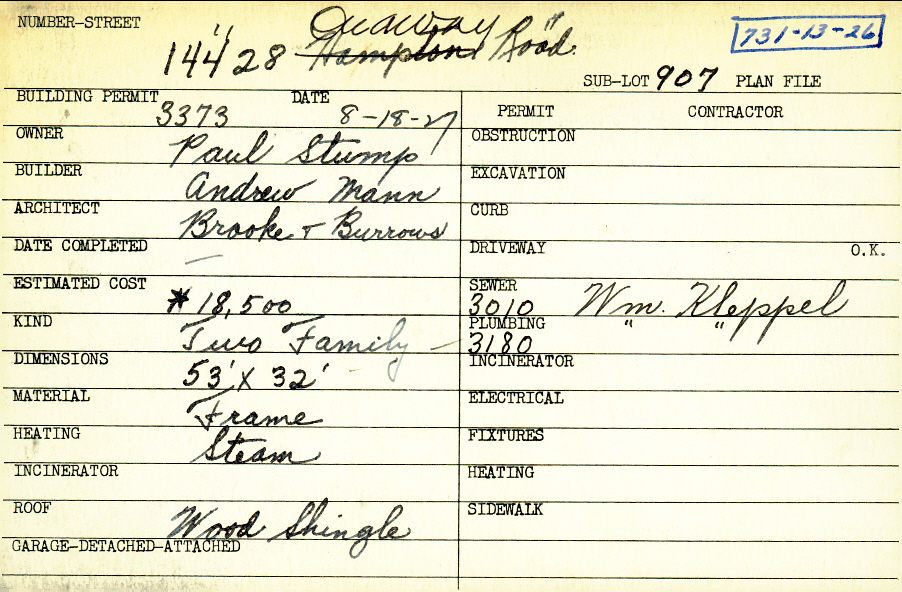 NUMBER-STREET
Onaway
14428 Hampton Road
731-13-26
SUB-LOT 907 PLAN FILE
BUILDING PERMIT 3373 DATE 8-18-27
PERMIT CONTRACTOR
OWNER Paul Stump
OBSTRUCTION
BUILDER Andrew Mann
EXCAVATION
ARCHITECT Brooke + Burrows
CURB
DATE COMPLETED —
DRIVEWAY O.K.
ESTIMATED COST $ 18,500
SEWER 3010 Wm. Kleppel
KIND Two Family —
PLUMBING 3180 " "
DIMENSIONS 53' X 32'
INCINERATOR
MATERIAL Frame
ELECTRICAL
HEATING Steam
FIXTURES
INCINERATOR
HEATING
ROOF Wood Shingle
SIDEWALK
GARAGE-DETACHED-ATTACHED